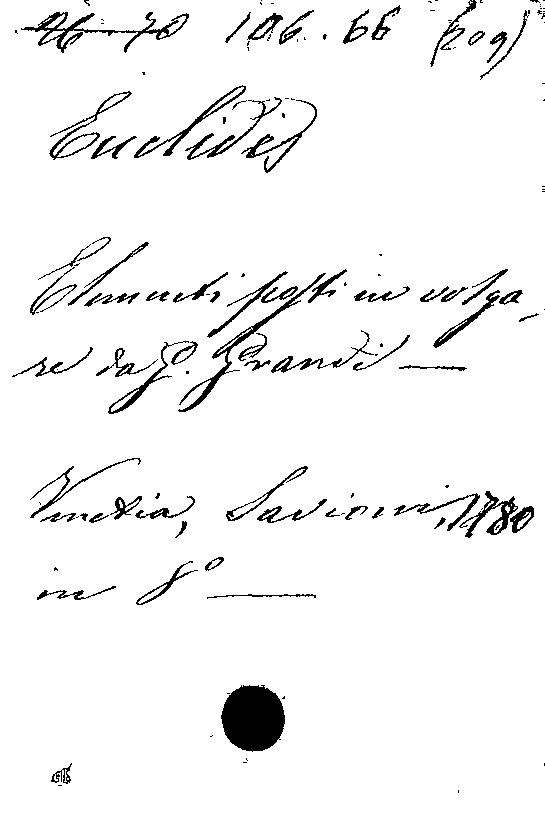 ~~26 70~~ 106. 66 (209)
Euclides
Elementi posti in volga-
re da G. Grandi —
Venezia, Savioni, 1780
in 8° —